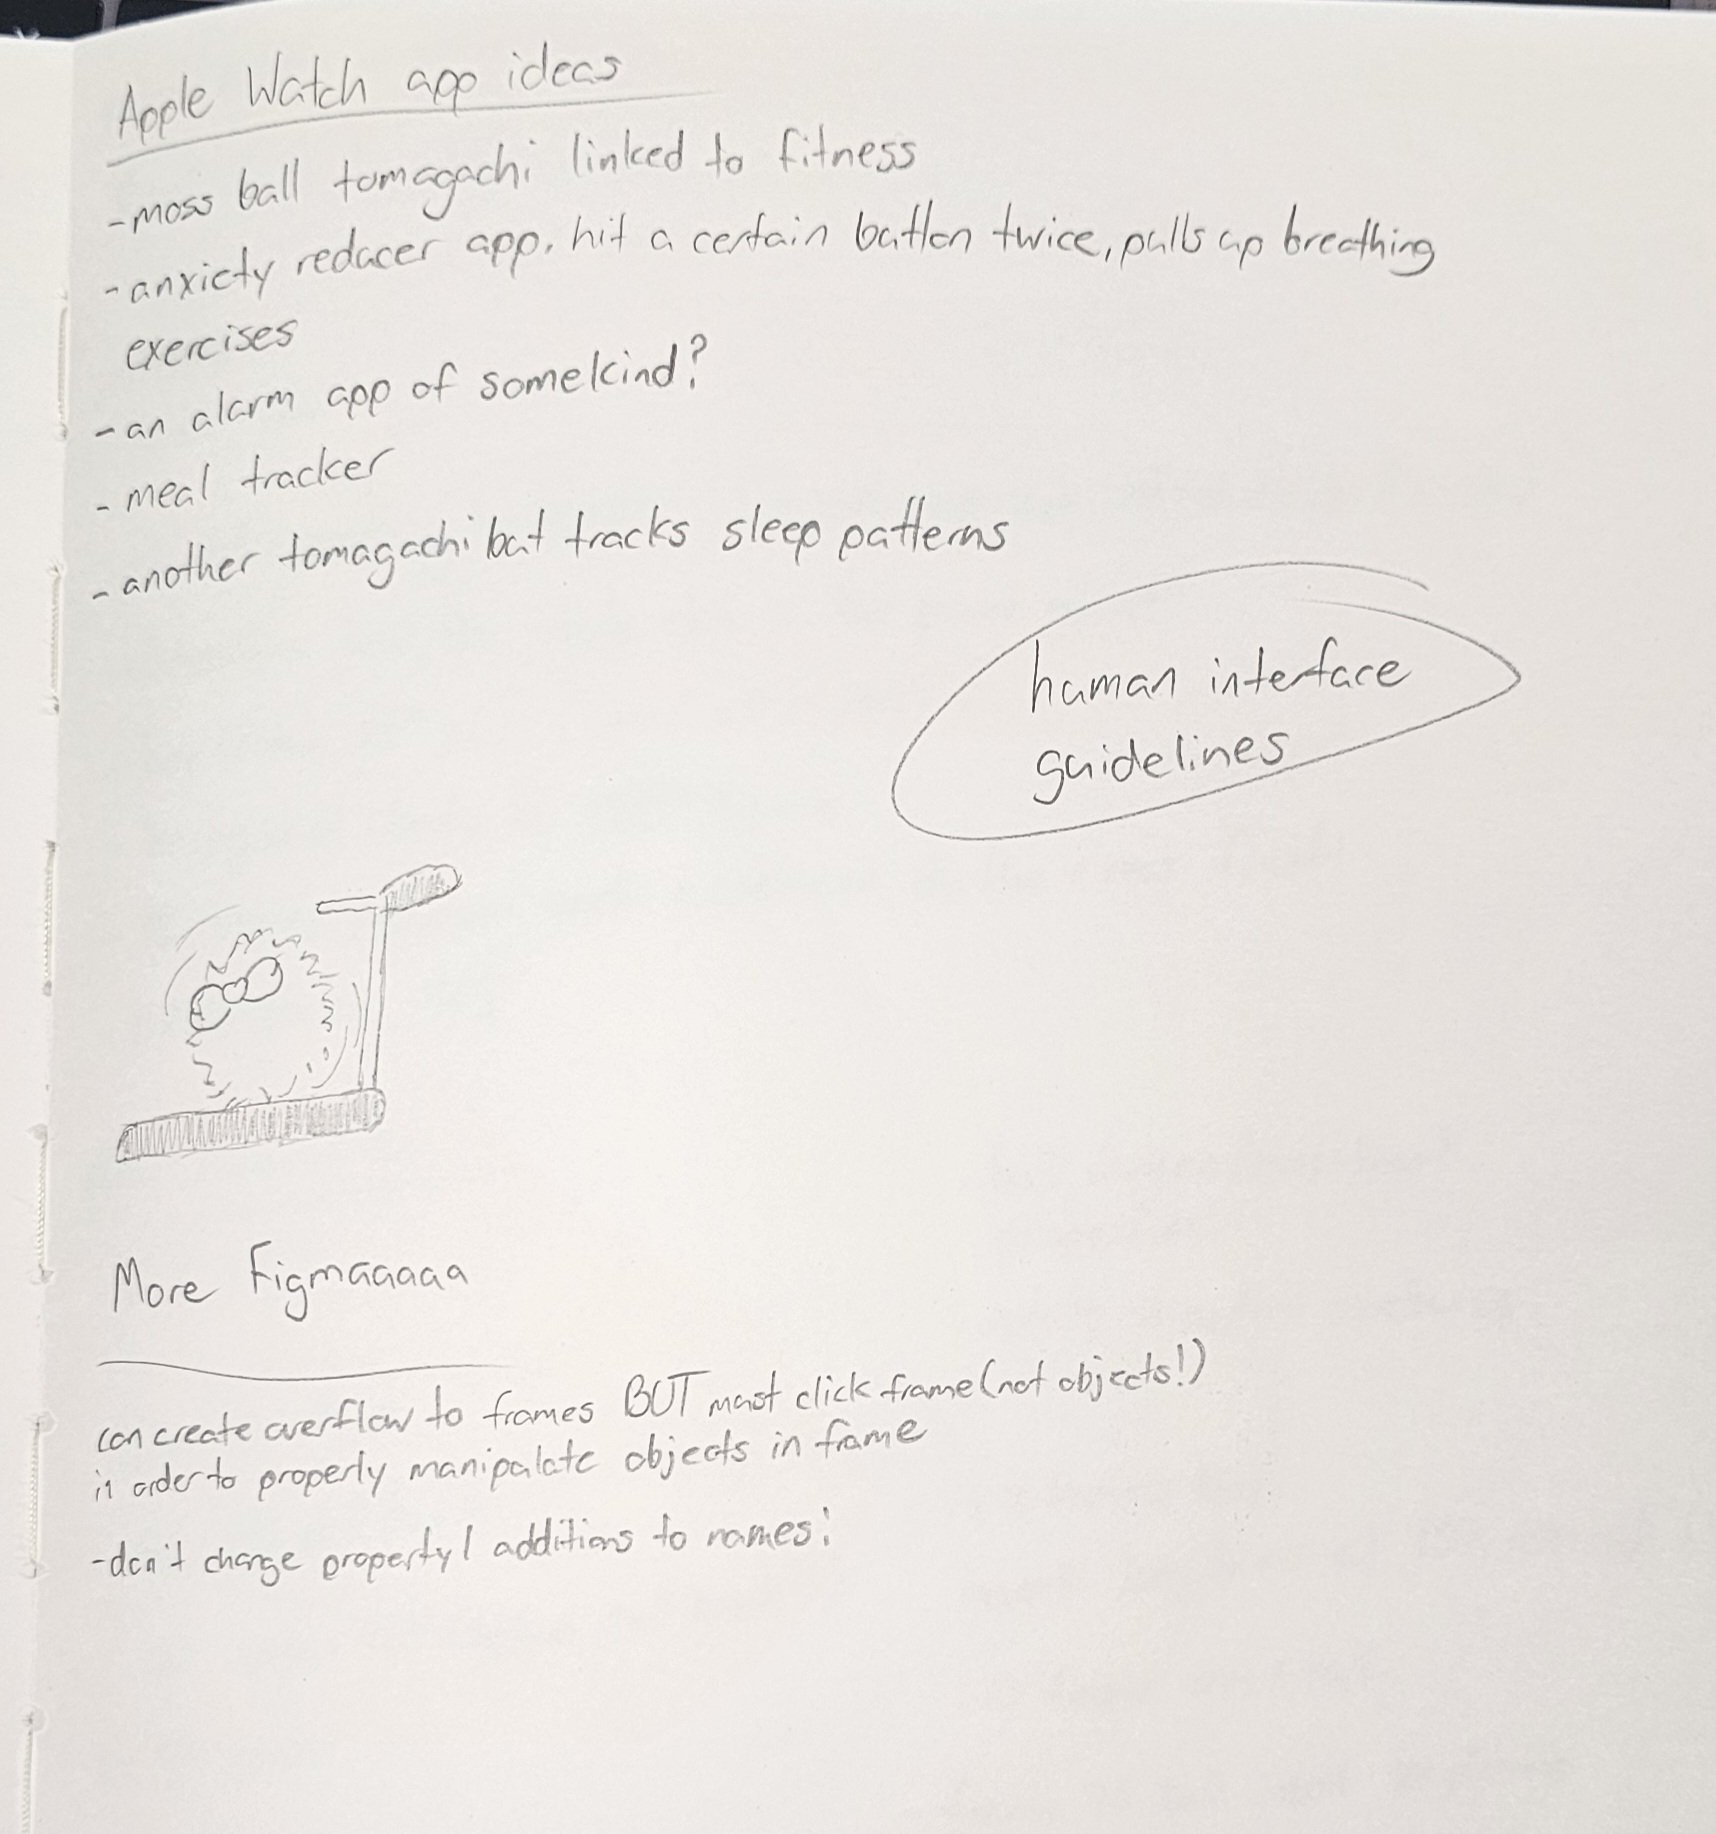 Apple Watch app ideas
-moss ball tomagachi linked to fitness
-anxiety reducer app. hit a certain button twice, pulls up breathing
exercises
-an alarm app of somekind?
-meal tracker
-another tomagachi but tracks sleep patterns
human interface
guidelines
More Figmaaaaa
can create overflow to frames BUT must click frame (not objects!)
in order to properly manipulate objects in frame
-don't change property 1 additions to names!